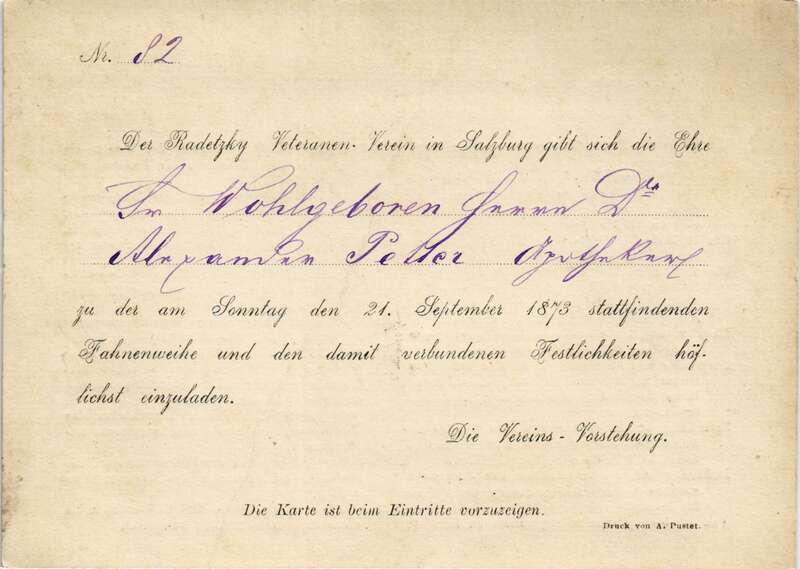 Nr. 82
Der Radetzky Veteranen-Verein in Salzburg gibt sich die Ehre
Sr Wohlgeboren Herrn Dr
Alexander Petter Apotheker
zu der am Sonntag den 21. September 1873 stattfindenden
Fahnenweihe und den damit verbundenen Festlichkeiten höf-
lichst einzuladen.
Die Vereins-Vorstehung.
Die Karte ist beim Eintritte vorzuzeigen.
Druck von A. Pustet.